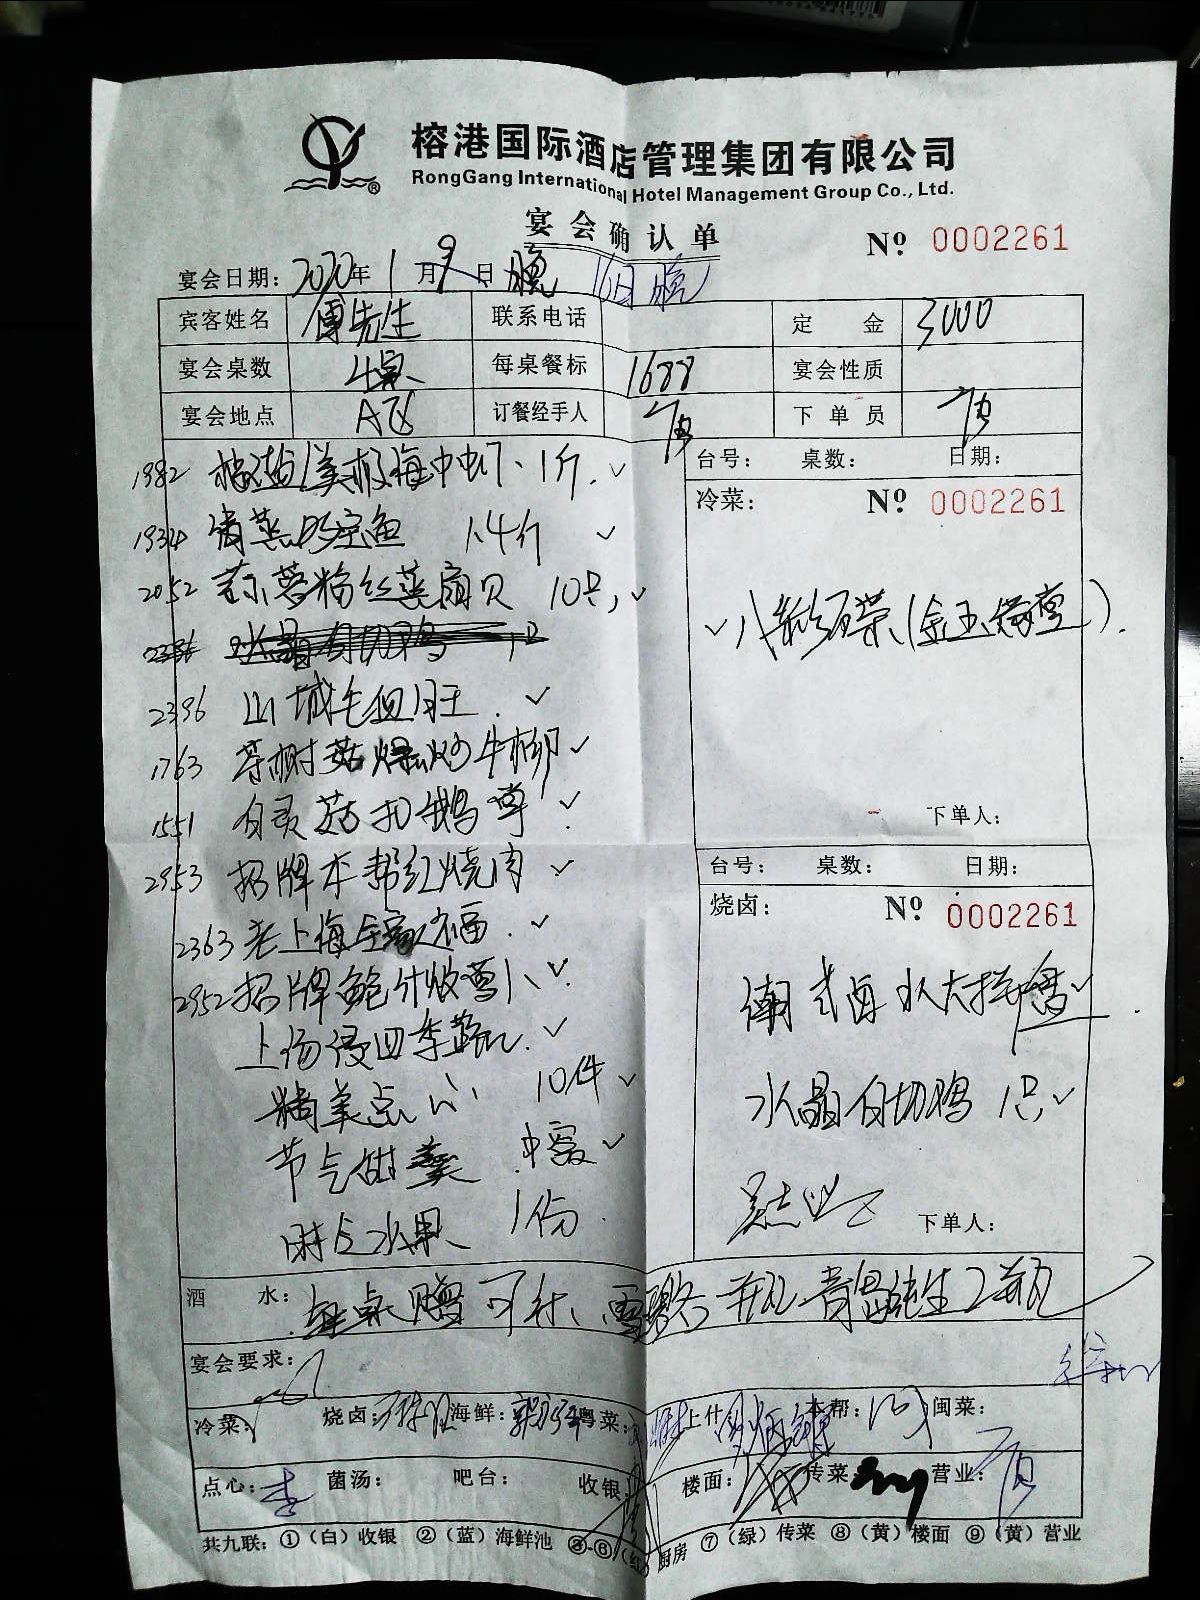 榕港国际酒店管理集团有限公司
RongGang International Hotel Management Group Co., Ltd.
宴会确认单
No. 0002261
宴会日期: 2020年1月9日 晚 16日晚
宾客姓名 傅先生 联系电话 定金 3000
宴会桌数 4桌 每桌餐标 1688 宴会性质
宴会地点 A区 订餐经手人 下单员
台号: 桌数: 日期:
1982 椒盐美极海中虾 1斤 ✓
冷菜: No. 0002261
1934 清蒸 1.4斤 ✓
2052 蒜蓉粉丝蒸扇贝 10只 ✓
✓ 八彩
2386 水晶白切鸡
2396 山城毛血旺 ✓
1763 茶树菇爆炒牛柳 ✓
1551 白灵菇扣鹅掌 ✓
下单人:
2953 招牌本帮红烧肉 ✓
台号: 桌数: 日期:
烧卤: No. 0002261
2363 老上海全家福 ✓
2952 招牌鲍汁 ✓
潮式卤水大拼盘 ✓
上汤浸四季蔬 ✓
精美点心 10件 ✓
水晶白切鸡 1只 ✓
节气甜羹 中窝 ✓
时令水果 1份
下单人:
酒水: 每桌赠可乐、雪碧各一瓶 青岛纯生2瓶
宴会要求:
冷菜: 烧卤: 海鲜: 粤菜: 上什: 本帮: 闽菜:
点心: 李 菌汤: 吧台: 收银: 楼面: 传菜: 营业:
共九联: ①(白)收银 ②(蓝)海鲜池 ③-⑥(红)厨房 ⑦(绿)传菜 ⑧(黄)楼面 ⑨(黄)营业